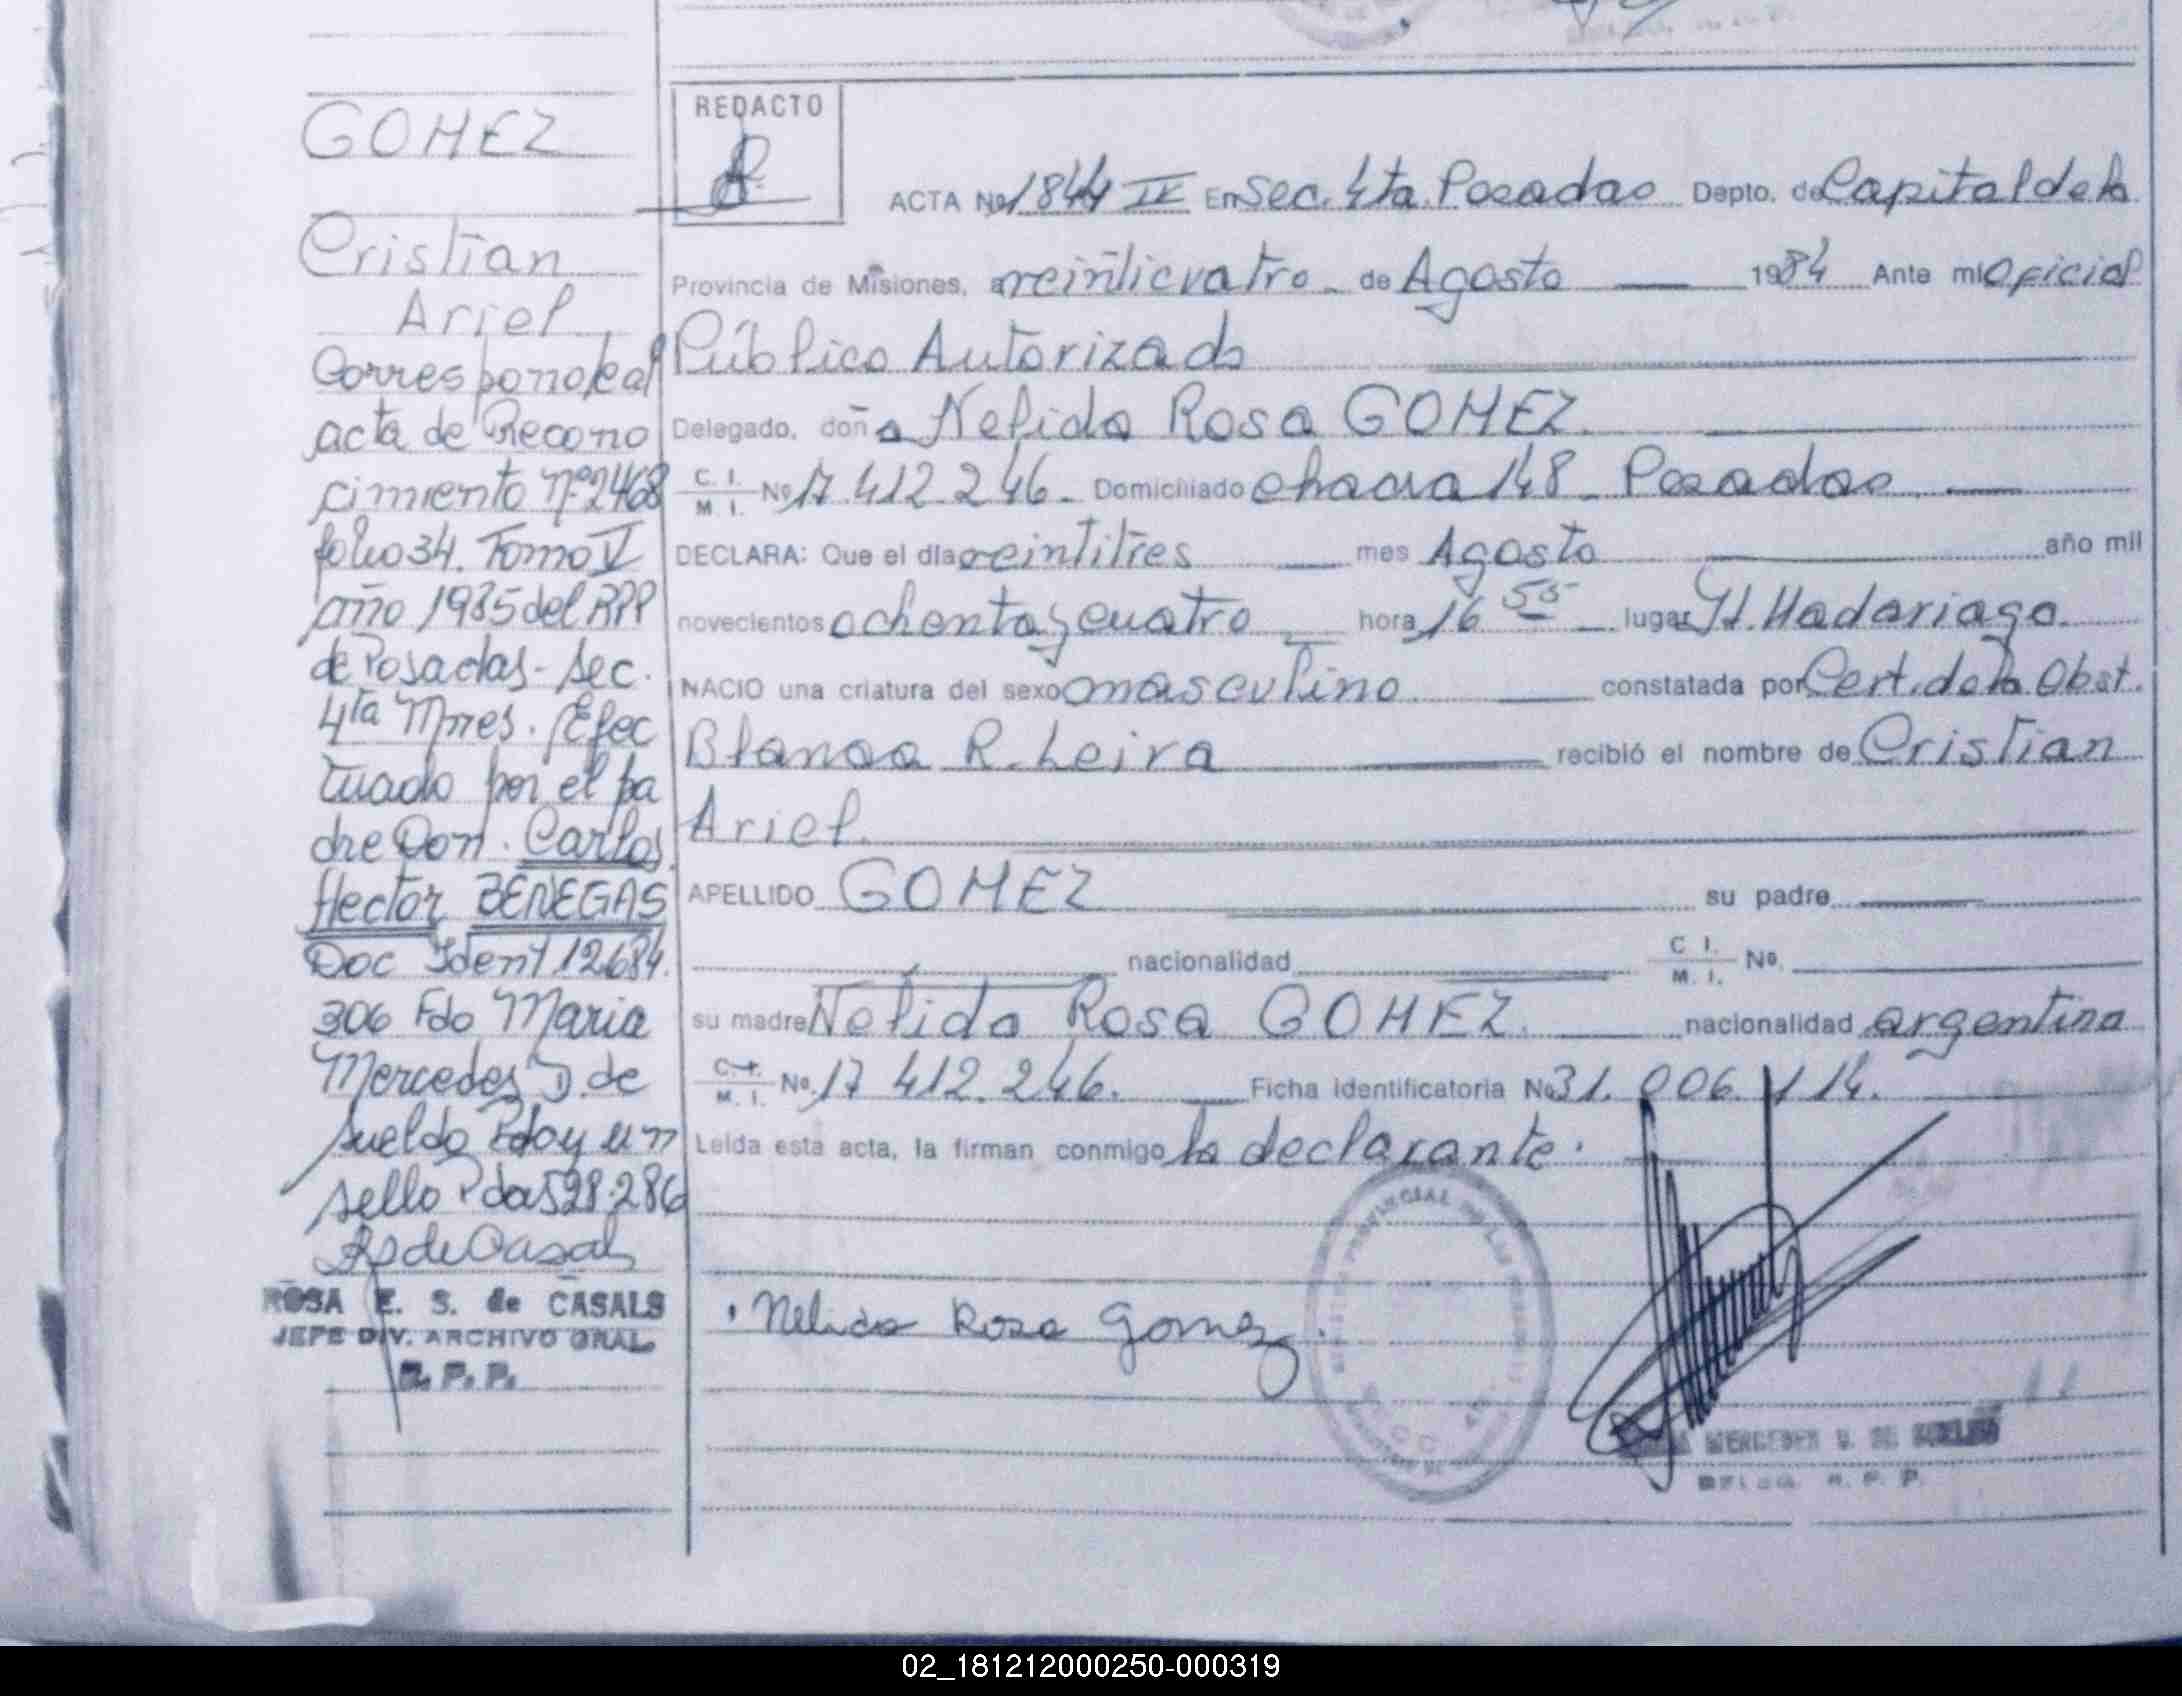 GOMEZ
Cristian
Ariel
Corresponde al
acta de Recono
cimiento Nº 2468
folio 34. Tomo V
año 1985 del RPP
de Posadas - Sec.
4ta Mnes. Efec
tuado por el pa
dre Don. Carlos
Hector BENEGAS
Doc Ident 12684.
306 Fdo Maria
Mercedes D. de
Sueldo Pdo y un
sello Pdas 28.286
R S de Casals
ROSA E. S. de CASALS
JEFE DIV. ARCHIVO GRAL.
R. P. P.
REDACTO
ACTA Nº 1844 II En Sec. 4ta. Posadas Depto. de Capital de la
Provincia de Misiones, a veinticuatro de Agosto 1984 Ante mi Oficial
Público Autorizado
Delegado, doña Nelida Rosa GOMEZ.
C. I. M. I. Nº 17.412.246. Domiciliado chacra 148 - Posadas
DECLARA: Que el día veintitres mes Agosto año mil
novecientos ochenta y cuatro hora 16 55 lugar H. Madariaga.
NACIO una criatura del sexo masculino constatada por Cert. de la Obst.
Blanca R. Leiva recibió el nombre de Cristian
Ariel.
APELLIDO GOMEZ su padre
nacionalidad C. I. M. I. Nº.
su madre Nelida Rosa GOMEZ. nacionalidad argentina
C. I. M. I. Nº. 17.412.246. Ficha identificatoria Nº 31.006.114.
Leída esta acta, la firman conmigo la declarante.
Nelida Rosa Gomez.
MERCEDES D. DE SUELDO
DELEG. R. P. P.
02_181212000250-000319